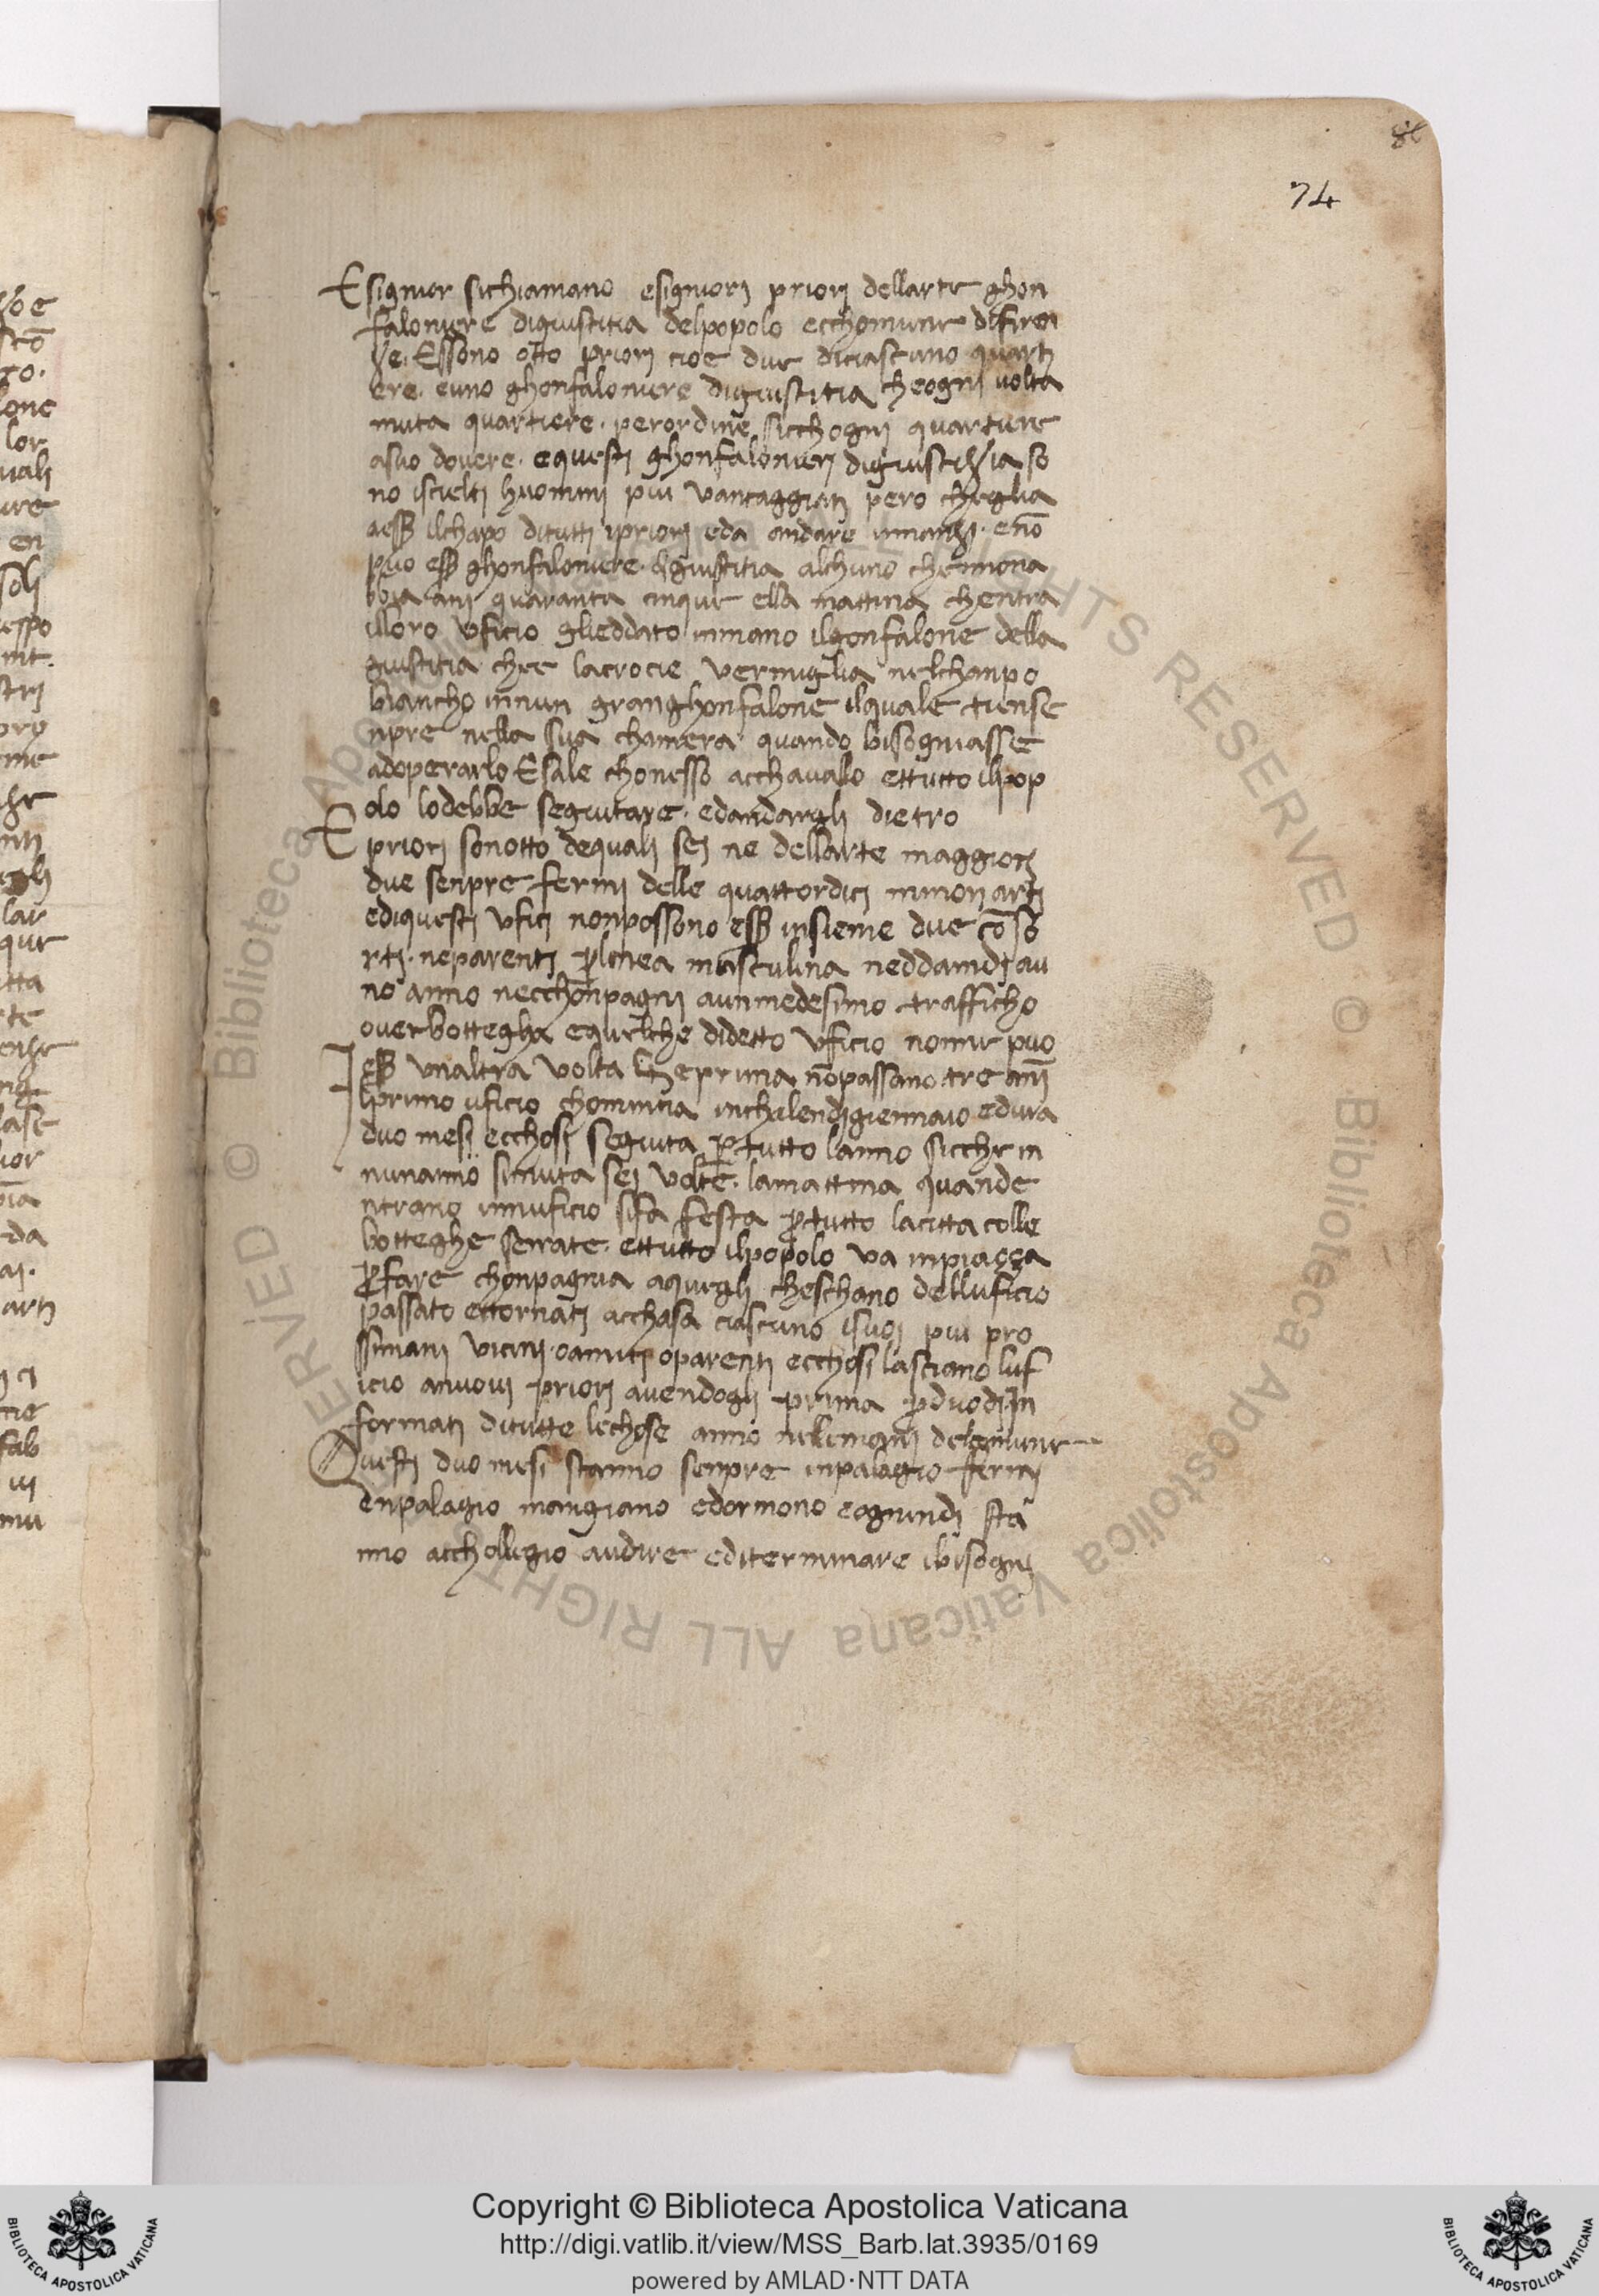 74
Esignior sichiamano esigniorj priorj dellarte ghon
faloniere digiustitia delpopolo ecchomune difiren
ze. Essono otto priorj cioe due diciascuno quarti
ere. euno ghonfaloniere digiustitia cheognj volta
muta quartiere. perordine sicchognj quartiere
asuo dovere. equestj ghonfalonierj digiustizia so
no iscieltj huominj piu vantaggiatj pero cheglia
aesß ilchapo ditutti ipriorj eda andare innanzi. enō
puo esß ghonfaloniere. digiustitia alchuno chennona
bbia anj quaranta cinque ella mattina chentra
illoro vficio glieddato inmano ilgonfalone della
giustitia chee lacrocie vermiglia nelchanpo
biancho innun granghonfalone ilquale tiense
npre nella sua chamera quando bisogniasse
adoperarlo Esale chonesso acchavallo ettutto ilpop
olo lodebbe seguitare. edandargli dietro
E priorj sonotto dequalj sej ne dellarte maggiorj
due senpre fermj delle quattordicj minorj artj
ediquestj vficj nonpossono esß insieme due cōso
rtj. neparentj p linea masculina neddamdj au
no anno necchonpagnj aunmedesimo trafficho
overbottegha equelche didetto vficio nonne puo
esß unaltra volta che prima nōpassano tre anj
Ilprimo uficio chomincia inchalendjgiennaio edura
duo mesj ecchosj seguita p tutto lanno sicche in
nunanno simuta sej volte. lamattina quande
ntrano innuficio sifa festa p tutto lacitta colle
botteghe serrate. ettutto ilpopolo va inpiaçça
p fare chonpagnia aqueglj cheschano delluficio
passato ettornatj acchasa ciascuno isuoj piu pro
ssimanj vicinj. oamicj oparentj ecchosj lasciano luf
icio anuovj priorj avendoglj prima p duodj in
formatj ditutte lechose anno nellemanj delcomune
Questj duo mesj stanno senpre inpalagio fermj
Enpalagio mangiano edormono eognindj sta
nno accholleggio audire editerminare ibisognj
Copyright © Biblioteca Apostolica Vaticana
http://digi.vatlib.it/view/MSS_Barb.lat.3935/0169
powered by AMLAD·NTT DATA